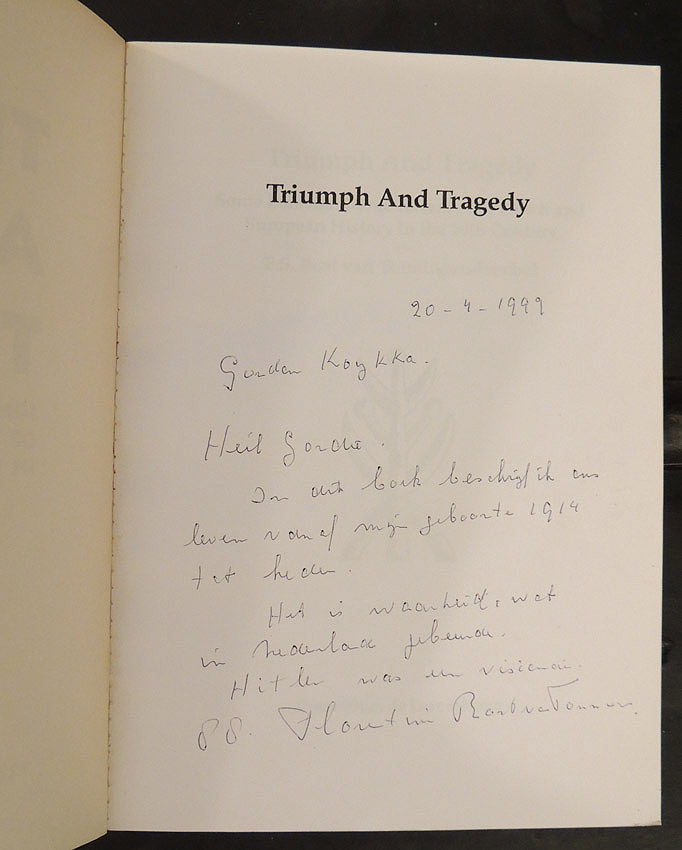 Triumph And Tragedy
20-4-1999
Gordon Koykka.
Heil Gordon.
In dit boek beschrijf ik ons
leven vanaf mijn geboorte 1914
tot heden.
Het is waarheid, wat
in Nederland gebeurde.
Hitler was een
Florentine Rost van Tonningen.